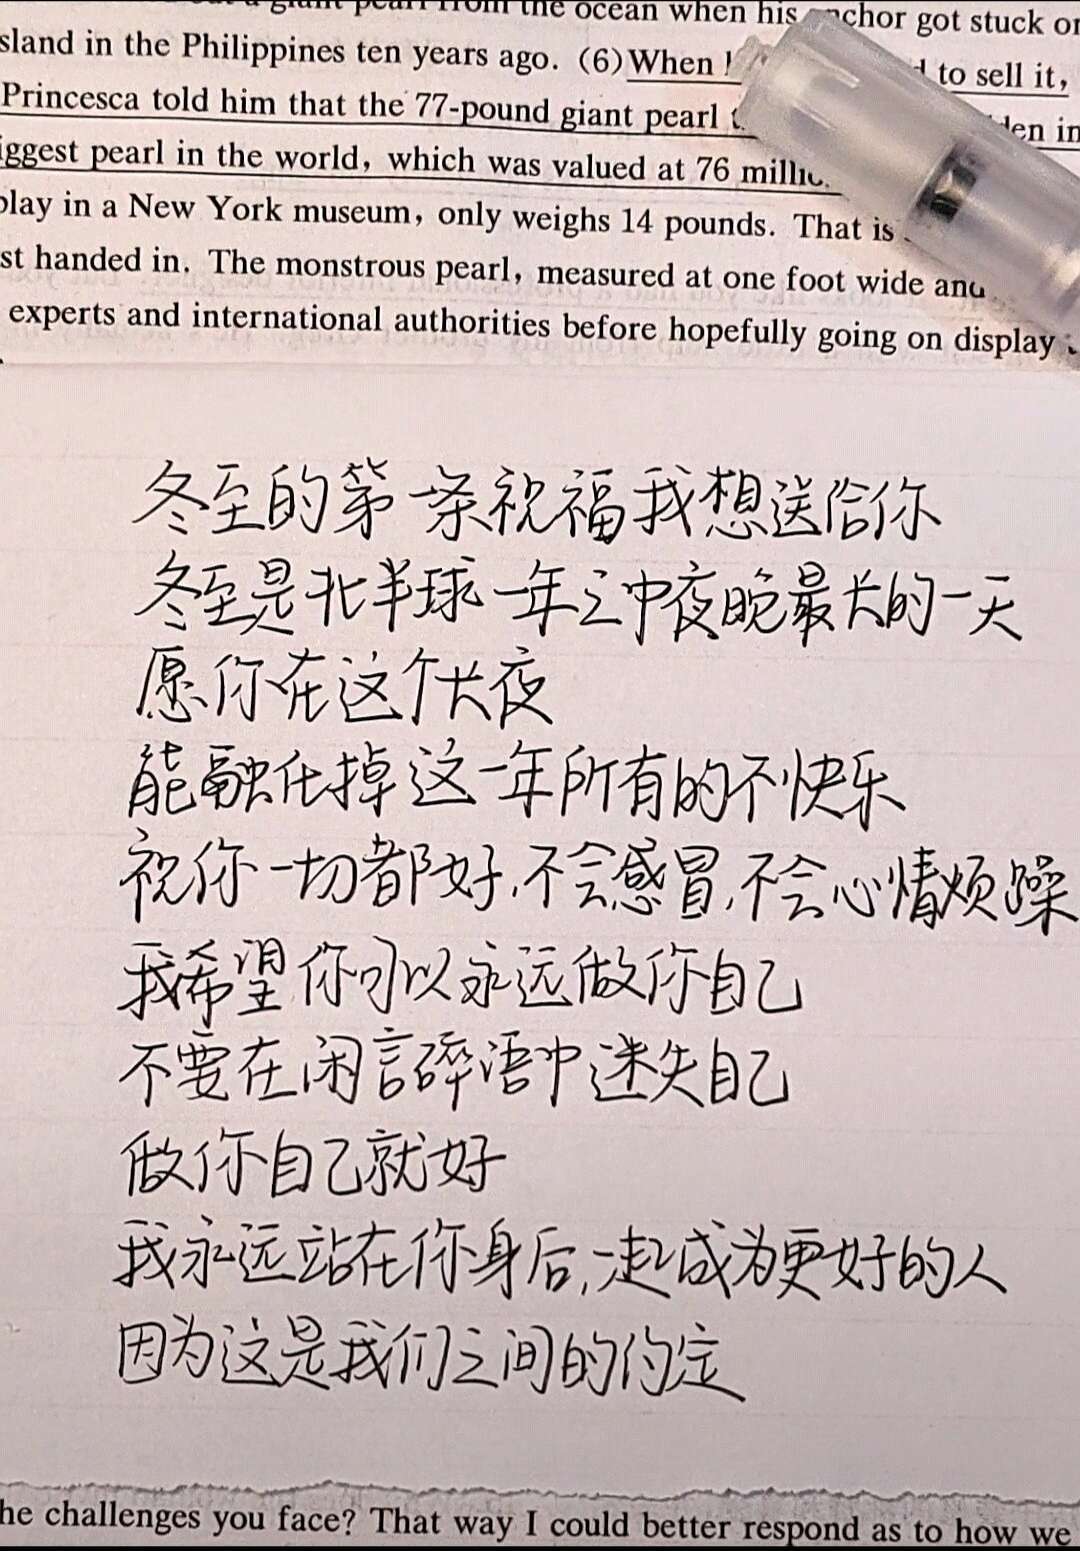 giant pearl from the ocean when his anchor got stuck on
sland in the Philippines ten years ago. (6)When to sell it,
Princesca told him that the 77-pound giant pearl den in
iggest pearl in the world, which was valued at 76 millio
play in a New York museum, only weighs 14 pounds. That is
st handed in. The monstrous pearl, measured at one foot wide and
experts and international authorities before hopefully going on display
冬至的第一条祝福我想送给你
冬至是北半球一年之中夜晚最长的一天
愿你在这个长夜
能融化掉这一年所有的不快乐
祝你一切都好,不会感冒,不会心情烦躁
我希望你可以永远做你自己
不要在闲言碎语中迷失自己
做你自己就好
我永远站在你身后,一起成为更好的人
因为这是我们之间的约定
he challenges you face? That way I could better respond as to how we